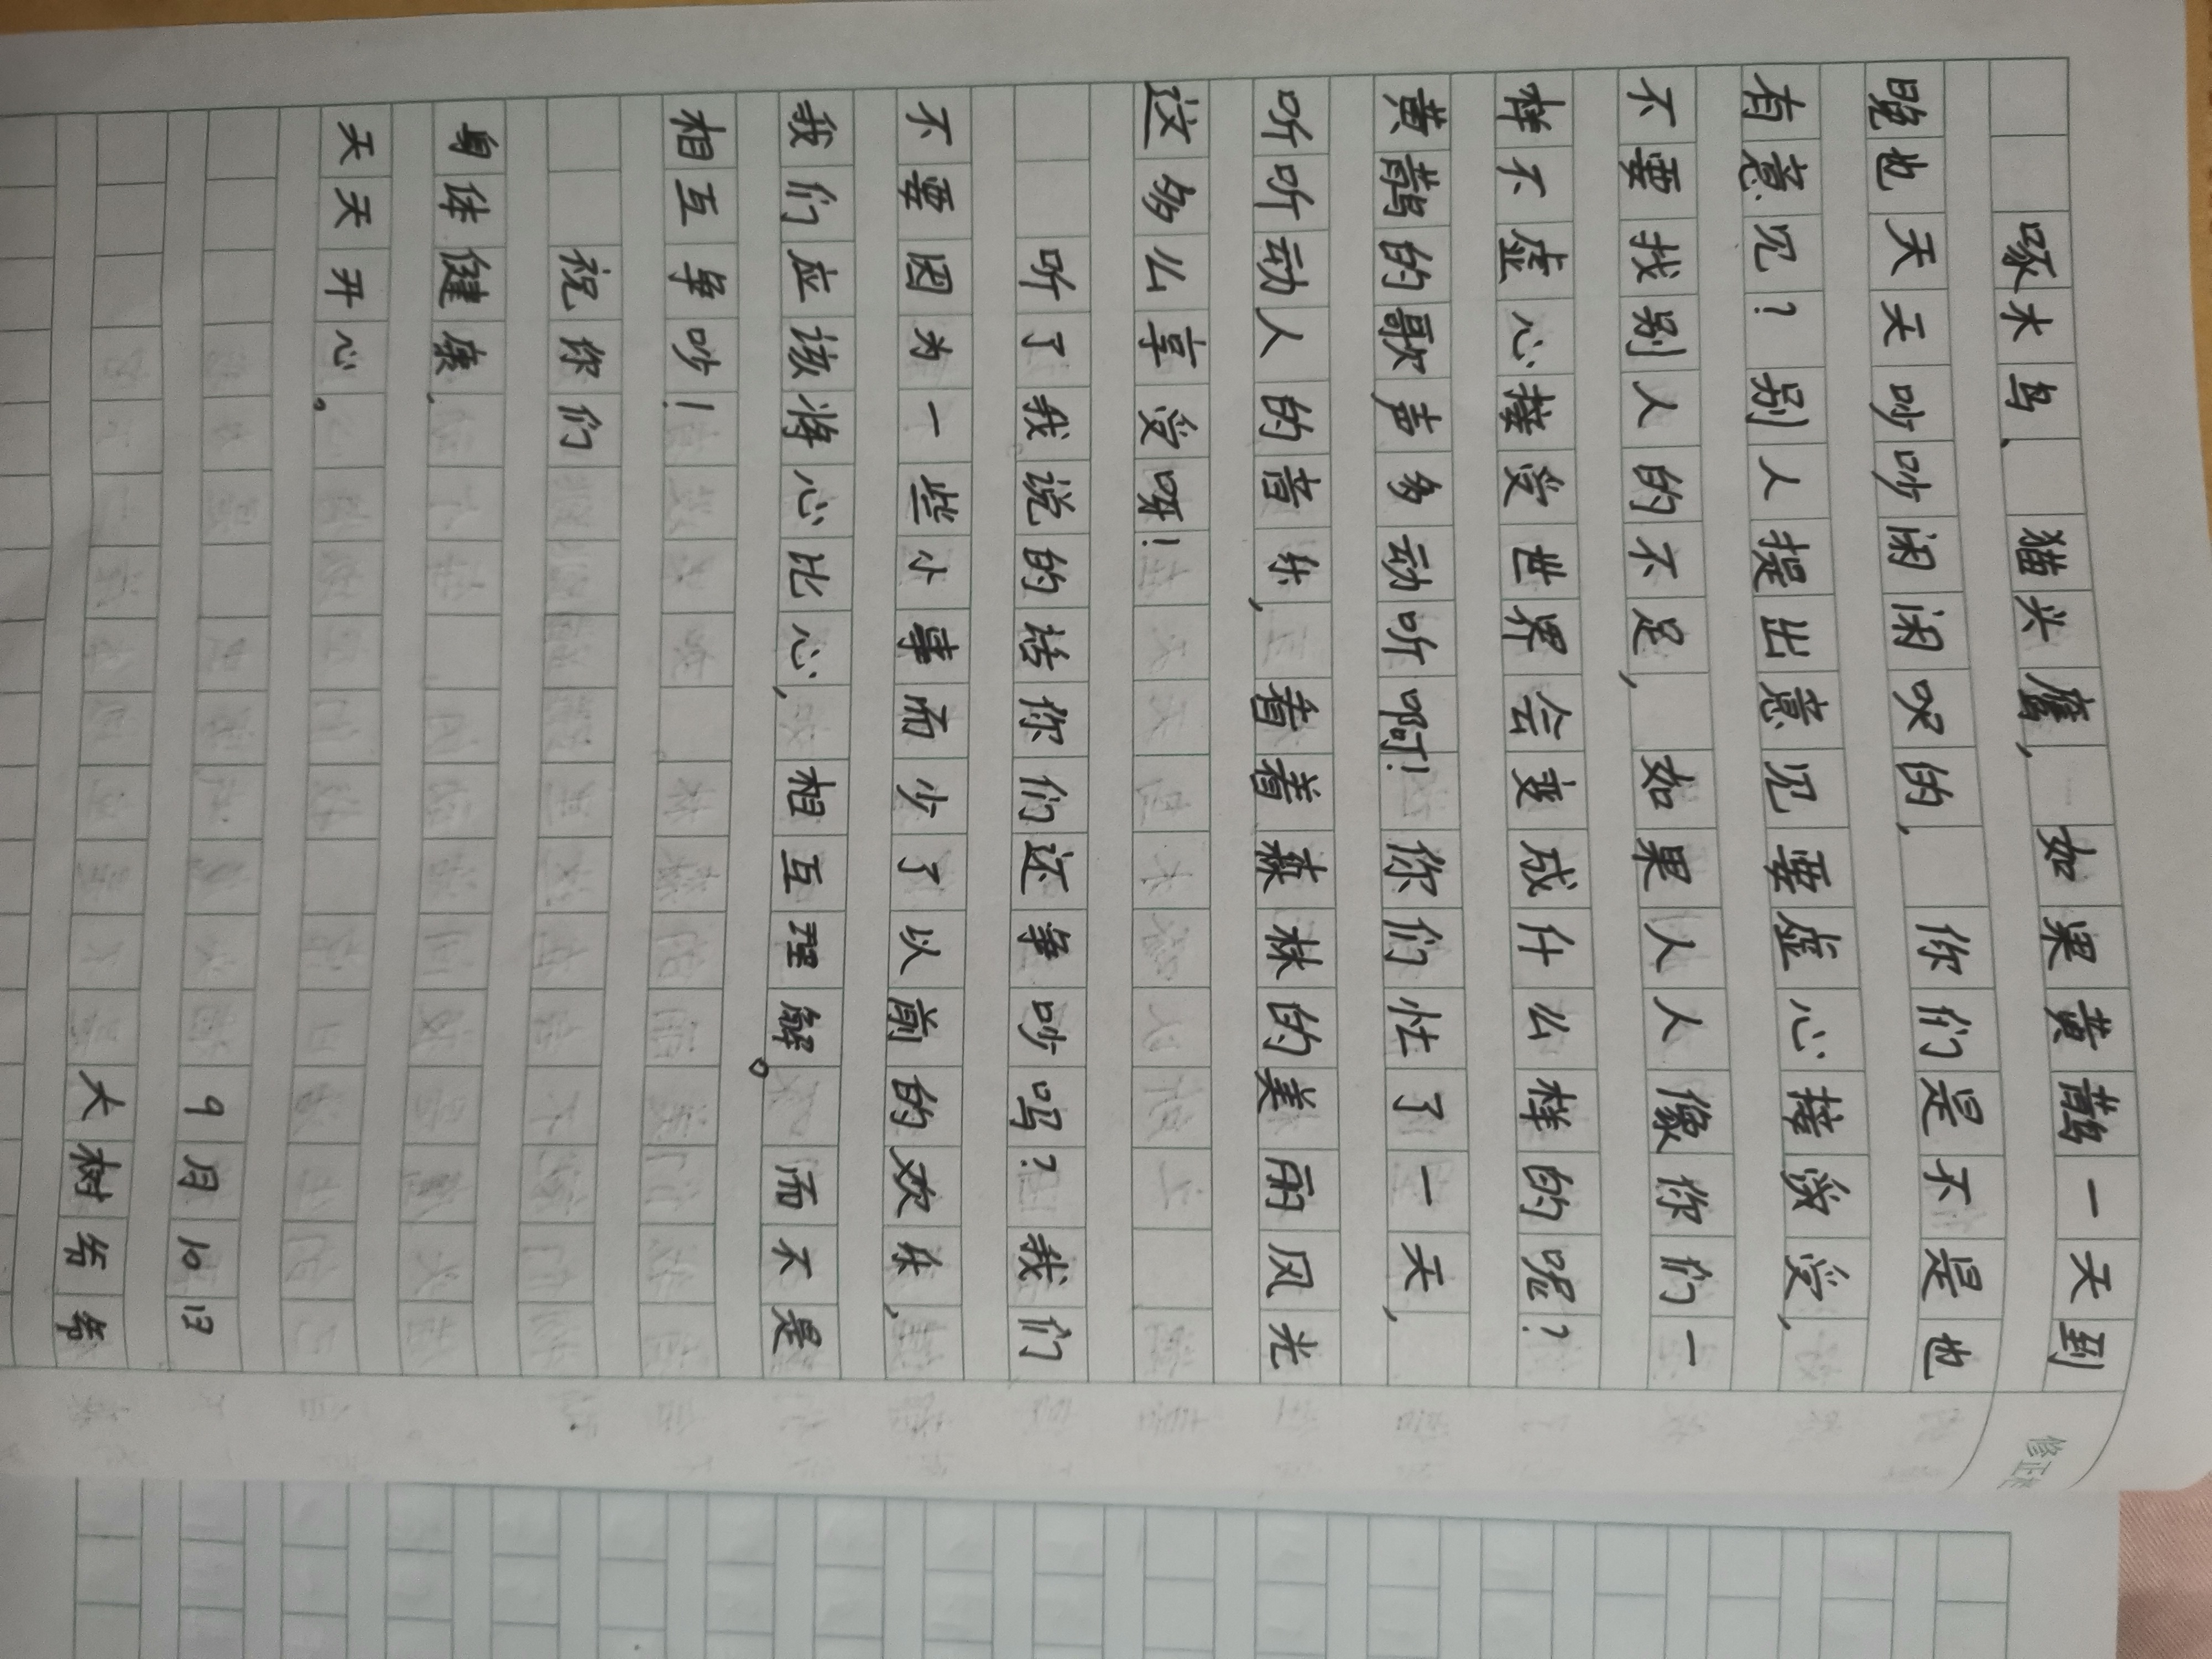 啄木鸟、猫头鹰，如果黄鹂一天到
晚也天天吵吵闹闹哭的，你们是不是也
有意见？别人提出意见要虚心接受，
不要找别人的不足，如果人人像你们一
样不虚心接受世界会变成什么样的呢？
黄鹂的歌声多动听啊！你们忙了一天，
听听动人的音乐，看着森林的美丽风光
这多么享受呀！
听了我说的话你们还争吵吗？我们
不要因为一些小事而少了以前的欢乐，
我们应该将心比心，相互理解。而不是
相互争吵！
祝你们
身体健康，
天天开心。
9月10日
大树爷爷
修正栏